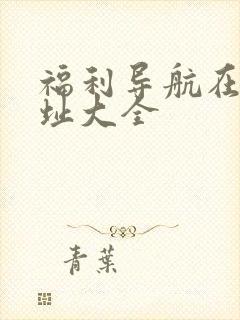 福利导航在
址大全
青葉